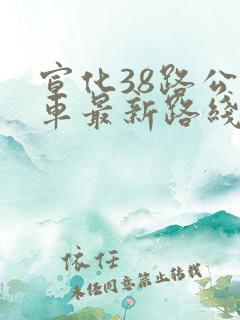 宣化38路公
车最新路线
依任
未经同意禁止转载